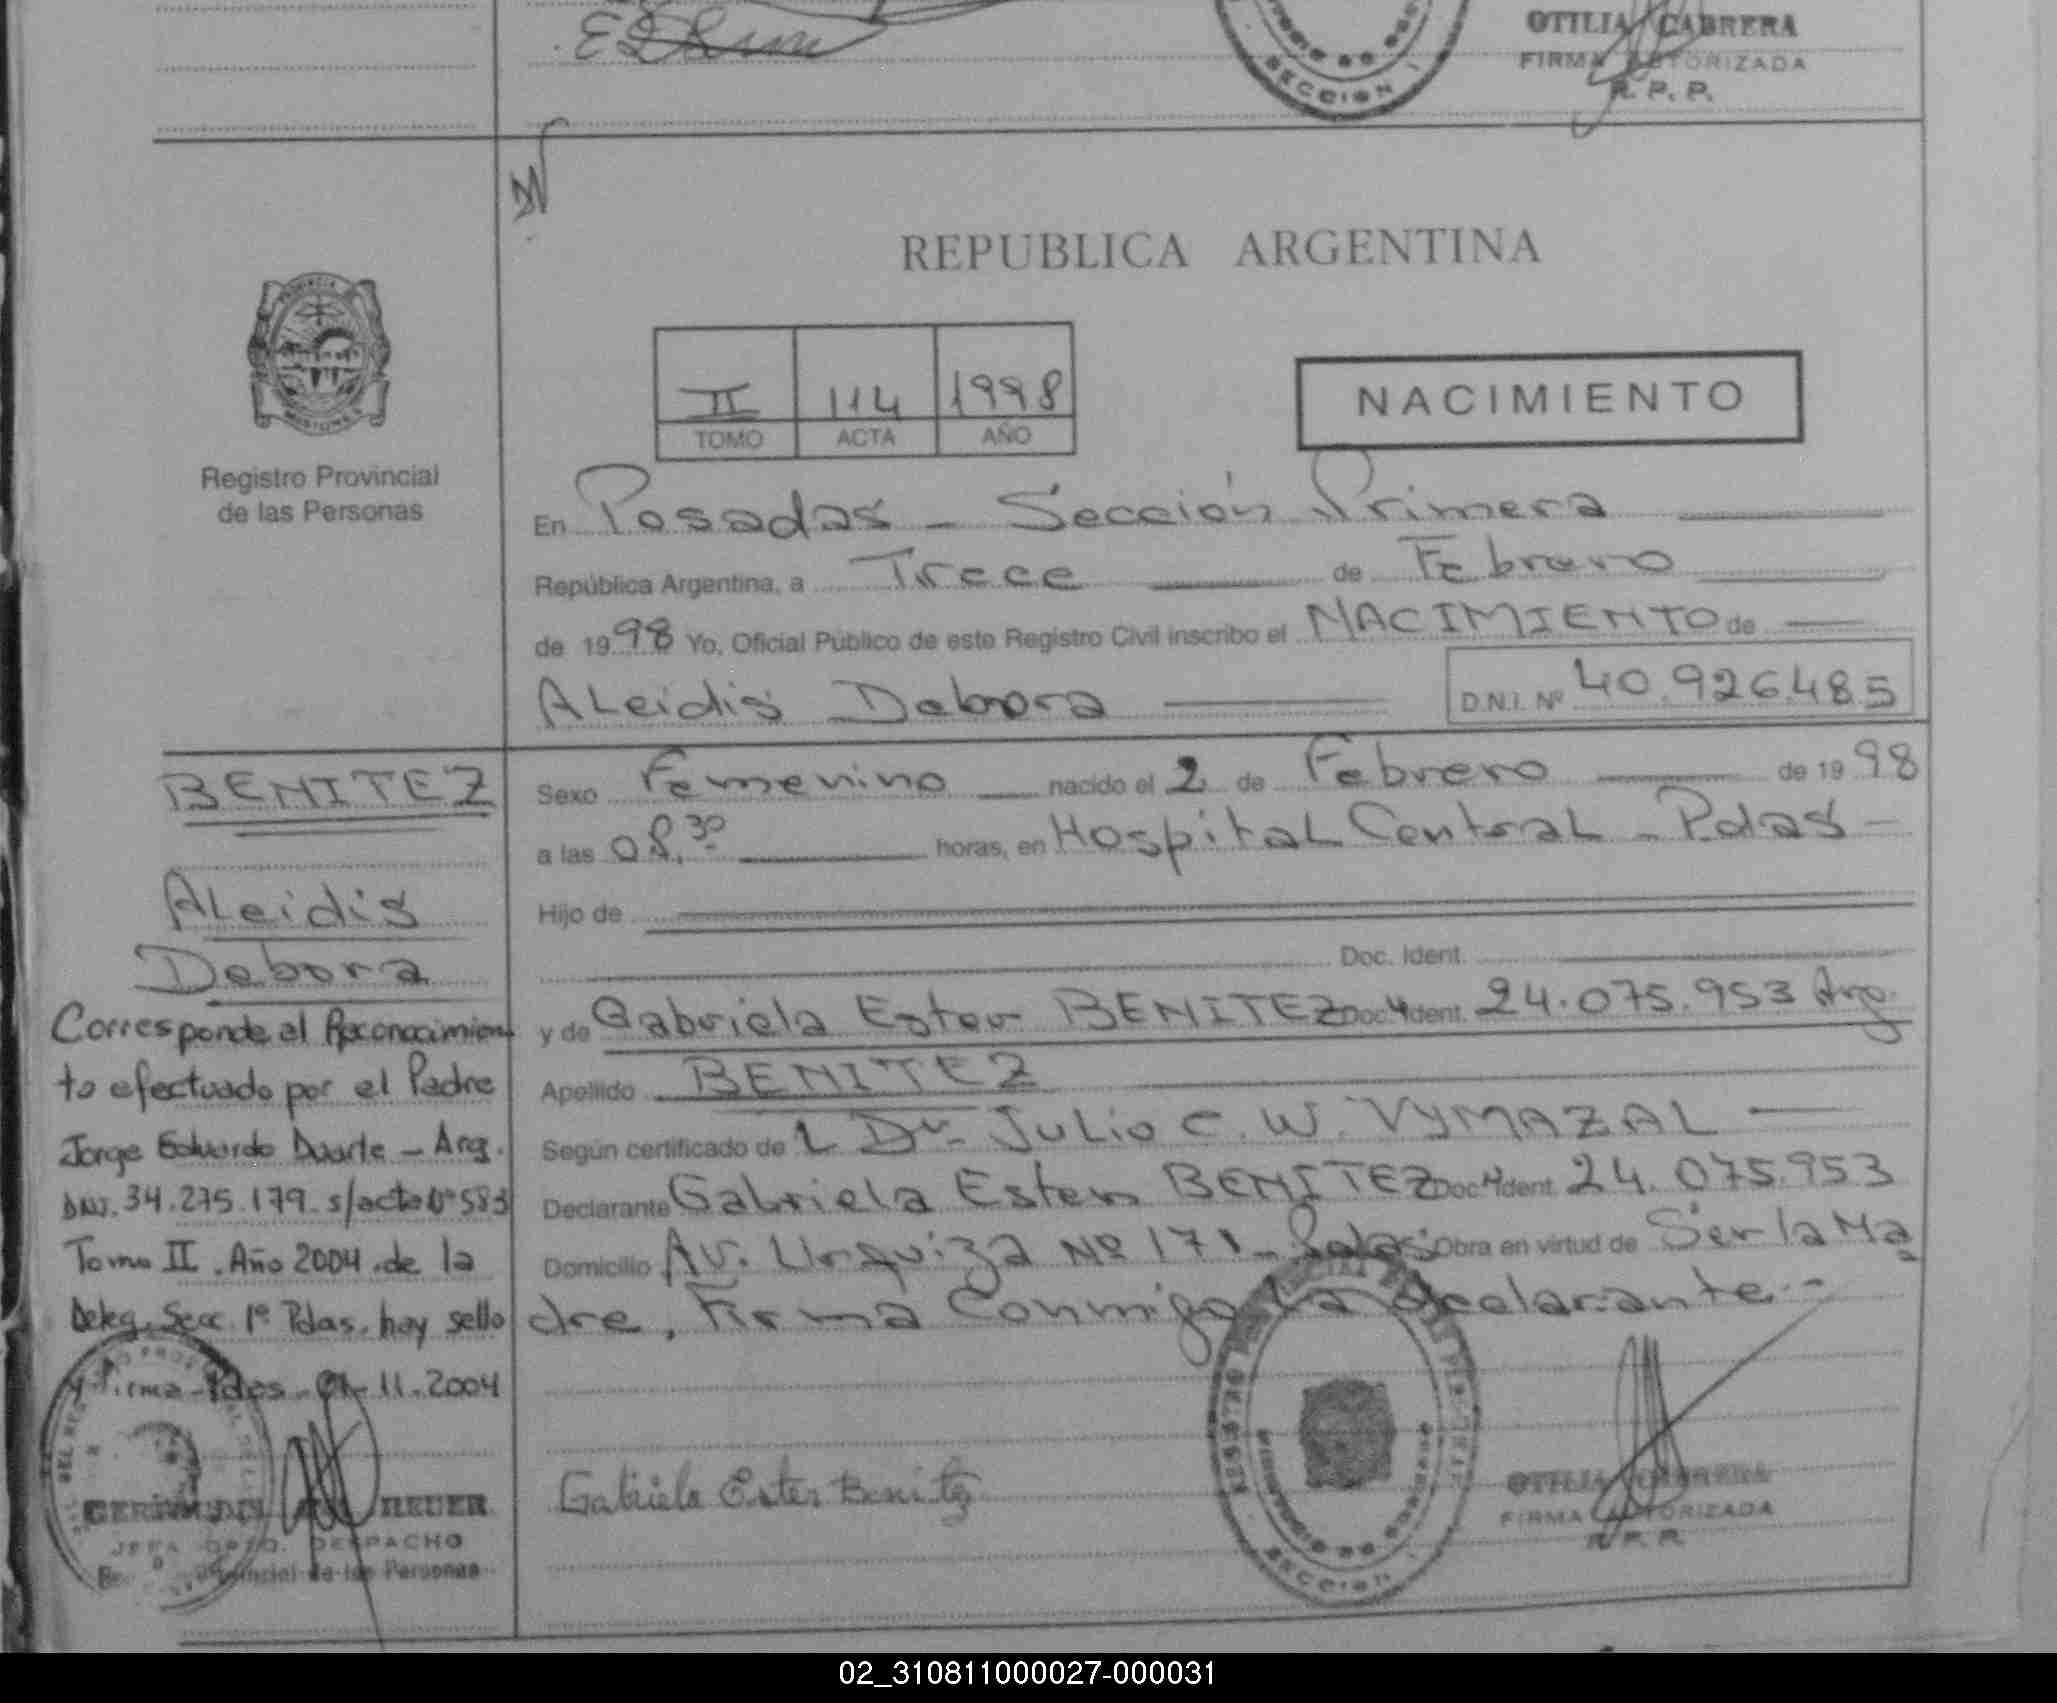 OTILIA CABRERA
FIRMA AUTORIZADA
R. P. P.
SECCION I
REPUBLICA ARGENTINA
PROVINCIA
MISIONES
Registro Provincial
de las Personas
II 114 1998
TOMO ACTA AÑO
NACIMIENTO
En Posadas - Sección Primera
República Argentina, a Trece de Febrero
de 1998 Yo, Oficial Público de este Registro Civil inscribo el NACIMIENTO de
Aleidis Debora D.N.I. Nº 40.926.485
BENITEZ
Aleidis
Debora
Corresponde al Reconocimien
to efectuado por el Padre
Jorge Eduardo Duarte - Arg.
DNI. 34.275.179. s/acta Nº 583
Tomo II. Año 2004. de la
Deleg. Secc. 1º Pdas. hoy sello
y firma - Pdas. 11.2004
REUER
JEFA DPTO. DESPACHO
Provincial de las Personas
Sexo Femenino nacido el 2 de Febrero de 1998
a las 08.30 horas, en Hospital Central - Pdas -
Hijo de
Doc. Ident.
y de Gabriela Ester BENITEZ Doc. Ident. 24.075.953 Arg.
Apellido BENITEZ
Según certificado de L Dr. Julio C. W. VYMAZAL
Declarante Gabriela Ester BENITEZ Doc. Ident. 24.075.953
Domicilio Av. Urquiza Nº 171 - Pdas Obra en virtud de Ser la Ma
dre, Firma Conmigo la declarante.-
Gabriela Ester Benitez
SECCION I
OTILIA CABRERA
FIRMA AUTORIZADA
R. P. P.
02_310811000027-000031